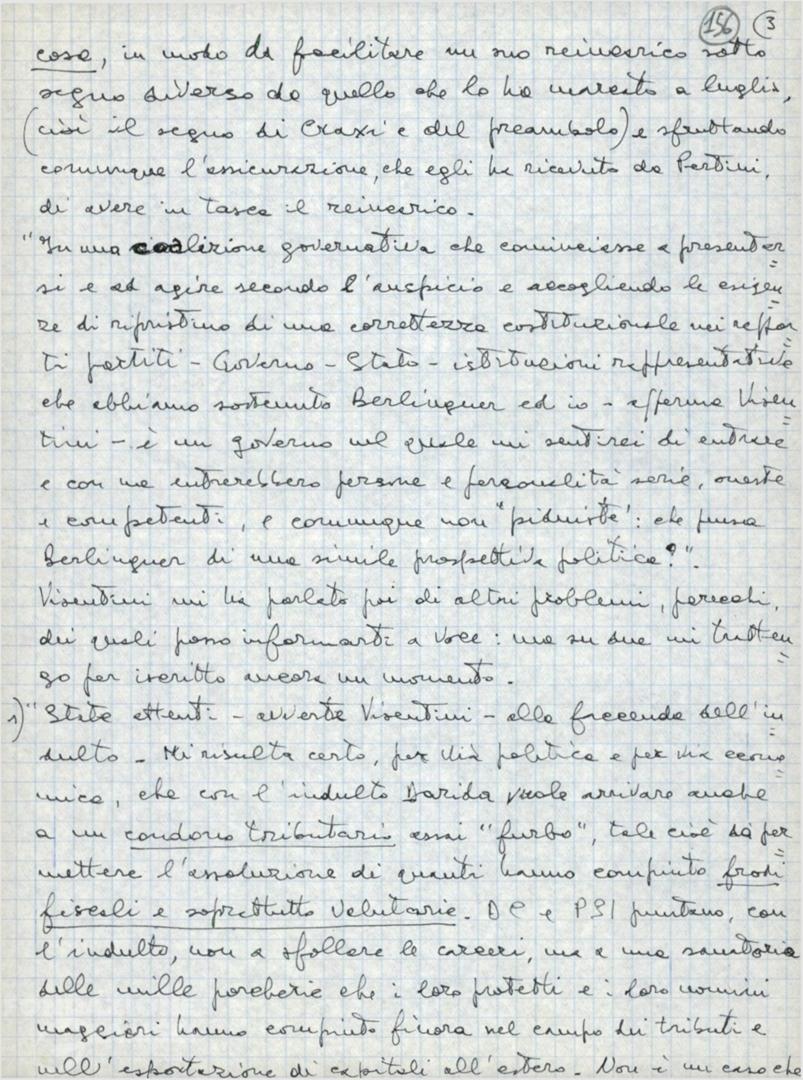 156 3
cosa, in modo da facilitare un suo reincarico sotto
segno diverso da quello che lo ha marcato a luglio,
(cioè il segno di Craxi e del preambolo) e sfruttando
comunque l'assicurazione, che egli ha ricevuto da Pertini,
di avere in tasca il reincarico.
"In una coalizione governativa che cominciasse a presentar=
si e ad agire secondo l'auspicio e accogliendo le esigen=
ze di ripristino di una correttezza costituzionale nei rappor=
ti partiti - Governo - Stato - istituzioni rappresentative
che abbiamo sostenuto Berlinguer ed io - afferma Visen=
tini - è un governo nel quale mi sentirei di entrare
e con me entrerebbero persone e personalità serie, oneste
e competenti, e comunque non "piduiste": che pensa
Berlinguer di una simile prospettiva politica?".
Visentini mi ha parlato poi di altri problemi, parecchi,
dei quali posso informarti a voce: ma su due mi tratten=
go per iscritto ancora un momento.
1) "State attenti - avverte Visentini - alla faccenda dell'in=
dulto. Mi risulta certo, per via politica e per via econo=
mica, che con l'indulto Darida vuole arrivare anche
a un condono tributario assai "furbo", tale cioè da per=
mettere l'assoluzione di quanti hanno compiuto frodi
fiscali e soprattutto valutarie. DC e PSI puntano, con
l'indulto, non a sfollare le carceri, ma a una sanatoria
delle mille porcherie che i loro protetti e i loro uomini
maggiori hanno compiuto finora nel campo dei tributi e
nell'esportazione di capitali all'estero. Non è un caso che